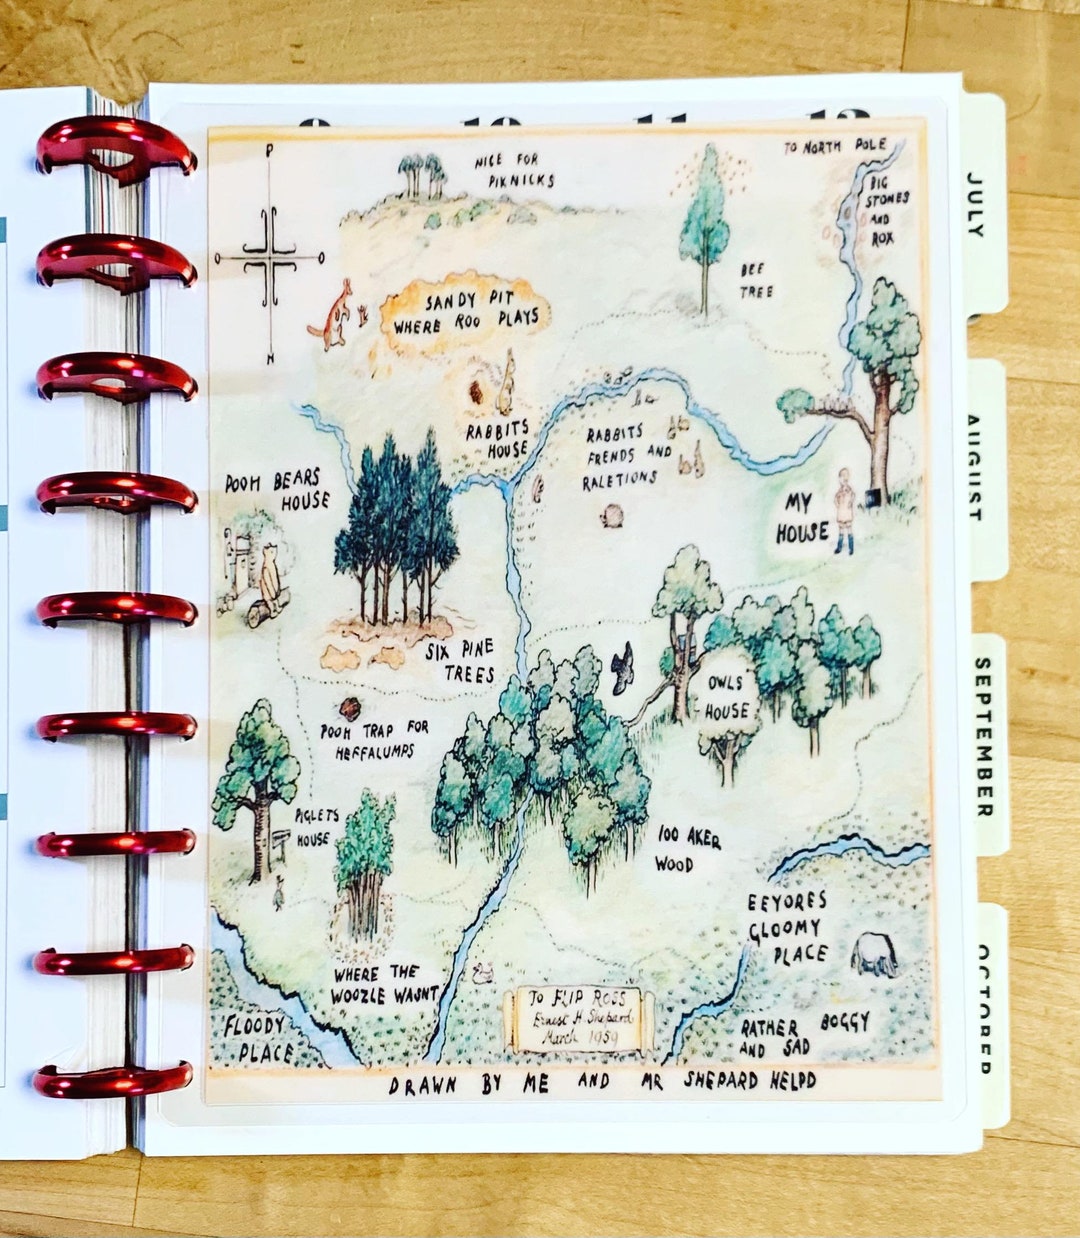 9 10 11 12
P
O O
H
NICE FOR
PIKNICKS
TO NORTH POLE
BIG
STONES
AND
ROX
BEE
TREE
SANDY PIT
WHERE ROO PLAYS
RABBITS
HOUSE
RABBITS
FRENDS AND
RALETIONS
POOH BEARS
HOUSE
MY
HOUSE
SIX PINE
TREES
OWLS
HOUSE
POOH TRAP FOR
HEFFALUMPS
PIGLETS
HOUSE
100 AKER
WOOD
EEYORES
GLOOMY
PLACE
WHERE THE
WOOZLE WASNT
FLOODY
PLACE
TO FLIP ROSS
Ernest H. Shepard
March 1959
RATHER BOGGY
AND SAD
DRAWN BY ME AND MR SHEPARD HELPD
JULY
AUGUST
SEPTEMBER
OCTOBER